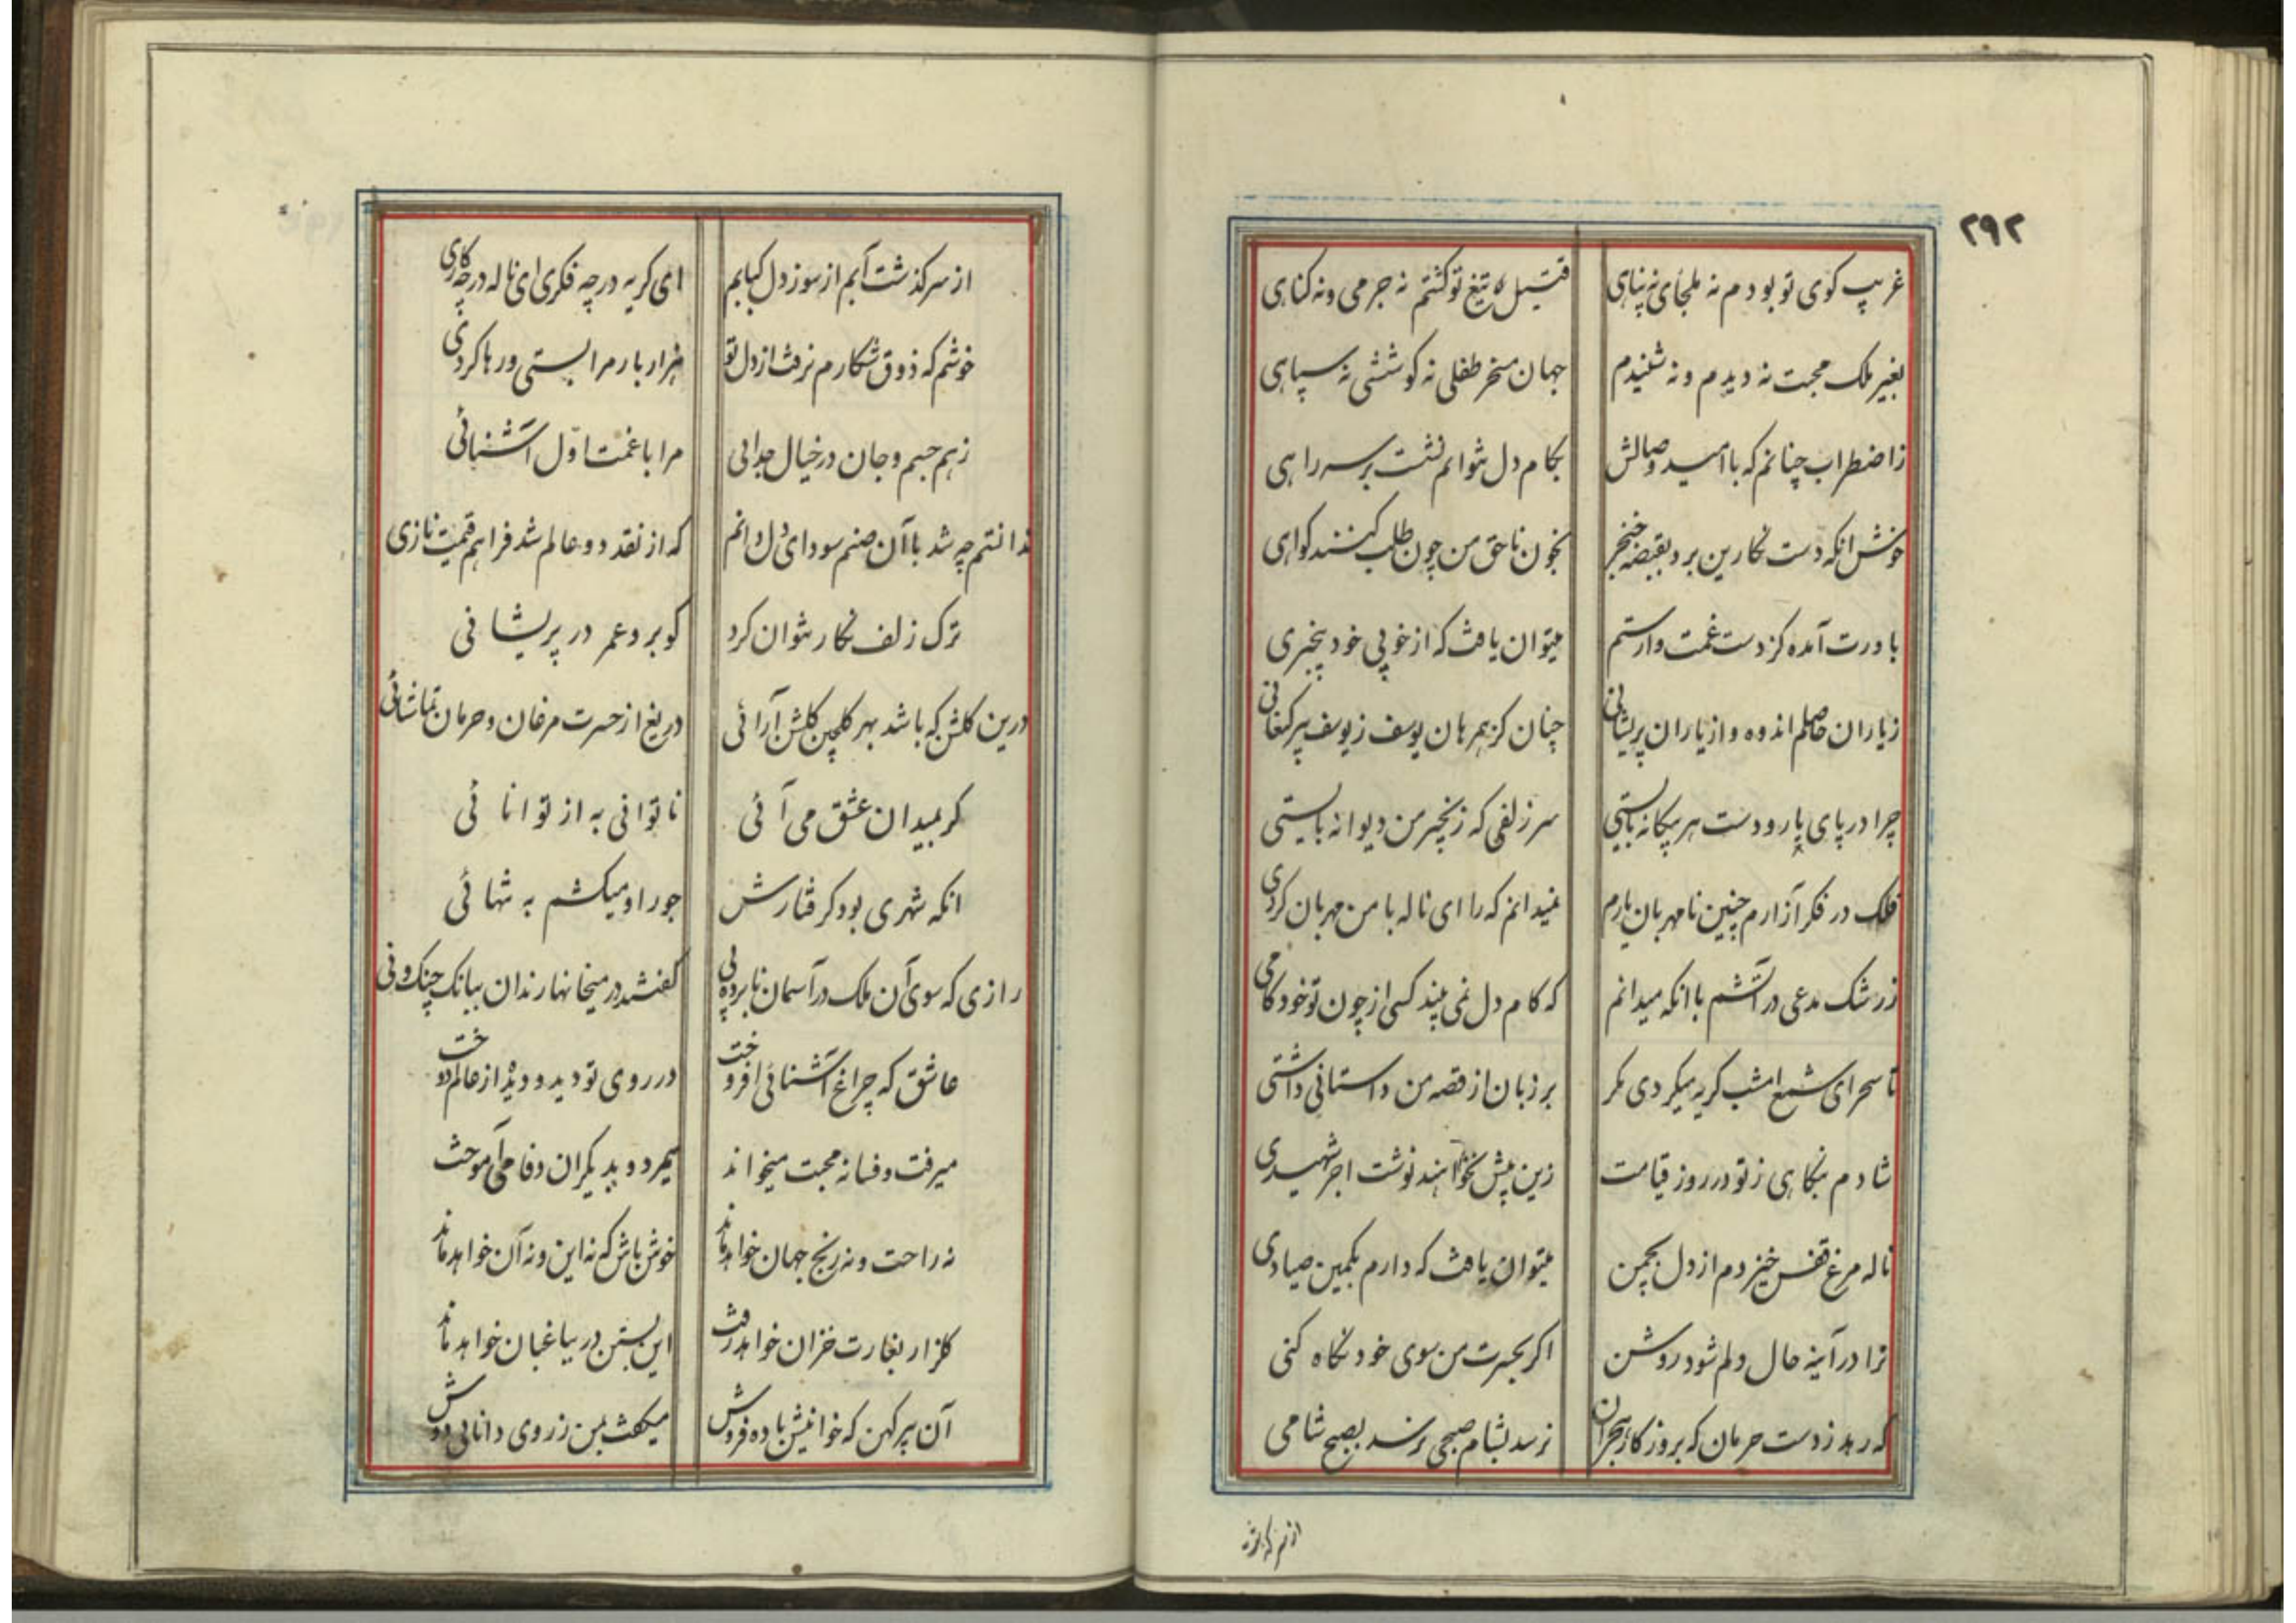 ۲۹۲
غریب کوی تو بودم نه ملجای نه پناهی قتیل تیغ تو کشتم نه جرمی و نه کناهی
بغیر ملک محبت نه دیدم و نه شنیدم جهان مسخر طفلی نه کوششی نه سپاهی
ز اضطراب چنانم که با امید وصالش بکام دل نتوانم نشست بر سر راهی
خوش انکه دست نکارین برد بقبضه خنجر بخون ناحق من چون طلب کنند کواهی
باورت آمده کز دست غمت وارستم میتوان یافت که از خوبی خود بیخبری
ز یاران حاصلم اندوه و از یاران پریشانی چنان کز همرهان یوسف ز یوسف پیر کنعانی
چرا در پای یار و دست هر بیکانه بایستی سر زلفی که زنجیر من دیوانه بایستی
فلک در فکر آزارم چنین نامهربان یارم نمیدانم که را ای ناله با من مهربان کردی
ز رشک مدعی در آتشم با انکه میدانم که کام دل نمی بیند کسی از چون تو خود کامی
تا سحر ای شمع امشب کریه میکردی مکر بر زبان از قصه من داستانی داشتی
شادم بنکاهی ز تو در روز قیامت زین بیش نخواهند نوشت اجر شهیدی
ناله مرغ قفس خیزدم از دل بچمن میتوان یافت که دارم بکمین صیادی
ترا در آینه حال دلم شود روشن اکر بحسرت من سوی خود نکاه کنی
که رهد ز دست حرمان که بروزکار هجران نرسد بشام صبحی نرسد بصبح شامی
از سر کذشت
از سر کذشت آبم از سوز دل کبابم ای کریه در چه فکری ای ناله در چه کاری
خوشم که ذوق شکارم نرفت از دل تو هزار بار مرا بستی و رها کردی
ز هم جسم و جان در خیال جدائی مرا با غمت اول آشنائی
ندانستم چه شد با آن صنم سودای دل دانم که از نقد دو عالم شد فراهم قیمت نازی
ترک زلف نکار نتوان کرد کو برو عمر در پریشانی
درین کلشن که باشد بهر کلچین کلشن آرائی دریغ از حسرت مرغان و حرمان تماشائی
کر بمیدان عشق می آئی ناتوانی به از توانائی
انکه شهری بود کرفتارش جور او میکشم به تنهائی
رازی که سوی آن ملک در آسمان نابرده پی کفتند در میخانها رندان ببانک چنک و نی
عاشق که چراغ آشنائی افروخت در روی تو دید و دیده از عالم دوخت
میرفت و فسانه محبت میخواند میمرد و بدیکران وفا می آموخت
نه راحت و نه رنج جهان خواهد ماند خوش باش که نه این و نه آن خواهد ماند
کلزار بغارت خزان خواهد رفت این بستن در بباغبان خواهد ماند
آن پیر کهن که خوانیش باده فروش میکفت بمن ز روی دانایی دوش